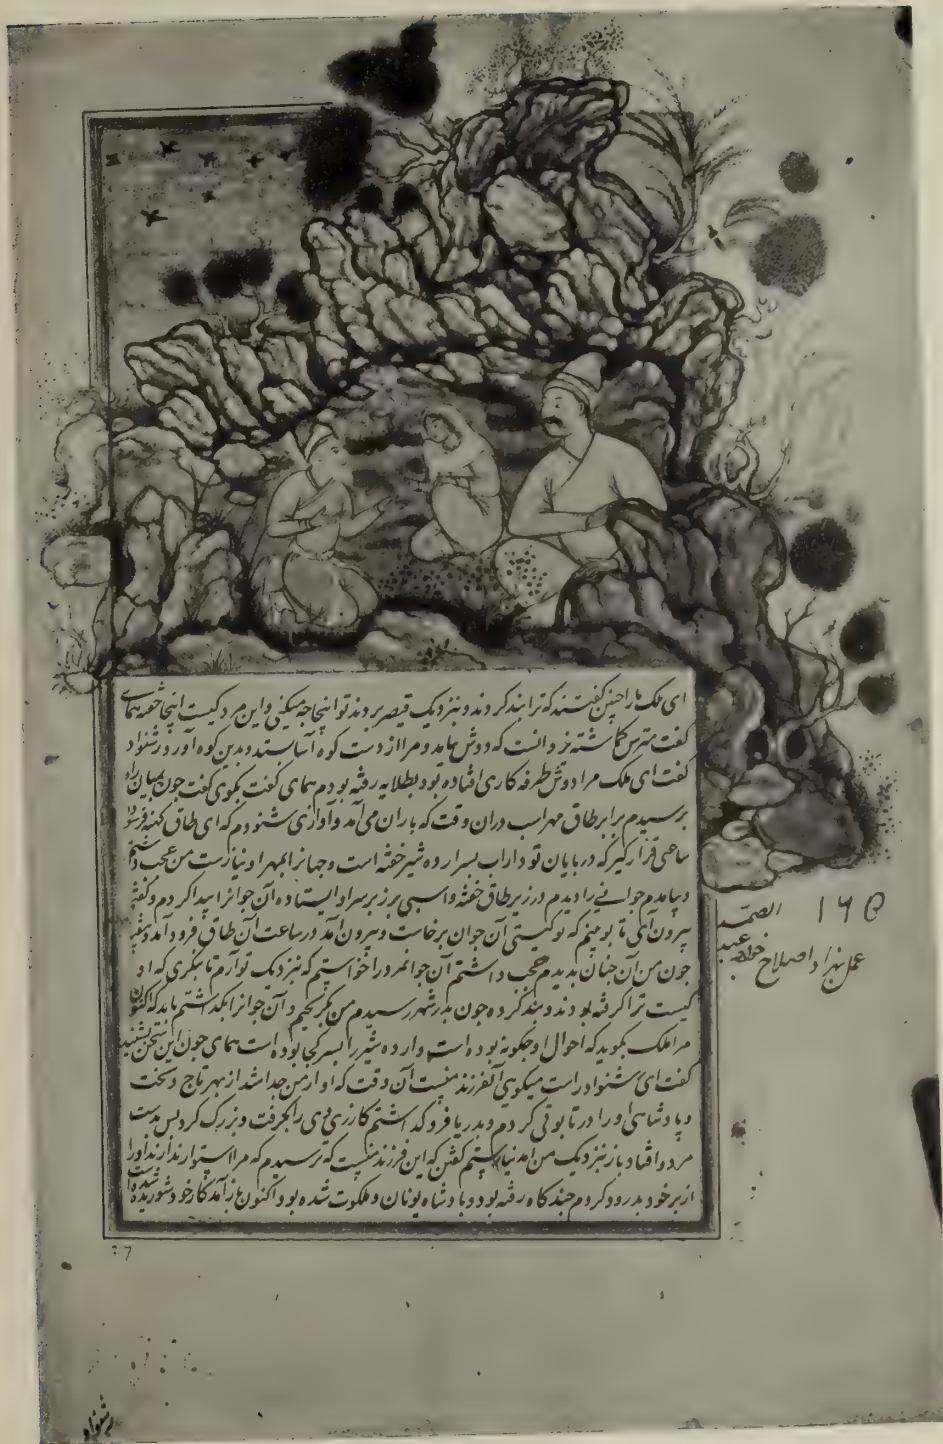 ای ملک ما را چنین گفتند که ترا بند کردند و بنزدیک قیصر بردند تو اینجا چه میکنی و این مرد کیست اینجا خفته همای
گفت مترس که دوش بیامد و مرا از دست کوه آسا بستد و بدین کوه آورد رشنواد
گفت ای ملک مرا دوش طرفه کاری افتاده بود بطلایه رفته بودم همای گفت بگوی گفت چون
برسیدم برابر طاق مهراب دران وقت که باران می آمد و آوازی شنودم که ای طاق کهنه
ساعتی قرار گیر که در پایان تو داراب بسر اردشیر خفته است و جهانرا بمهر او نیازست من عجب
بیامدم جوانی را دیدم در زیر طاق خفته و اسبی بر زبر سر او ایستاده آن جوانرا بیدار کردم و گفتم
بیرون آی تا بوبینم که تو کیستی آن جوان برخاست و بیرون آمد در ساعت آن طاق فرود آمد
جون من آن جنان بدیدم عجب داشتم آن جوانمرد را خواستم که بنزدیک تو آرم تا بنگری که او
کیست ترا کرفته بودند و بند کرده جون بدر شهر رسیدم من بگریختم و آن جوانرا بگذاشتم باید که اکنون
مرا ملک بگوید که احوال او جگونه بوده است و اردشیر را بسر کجا بوده است همای جون این سخن بشنید
گفت ای رشنواد راست میگویی آن فرزند منست آن وقت که او از من جدا شد از بهر تاج و تخت
و پادشاهی او را در تابوتی کردم و بدریا فرو گذاشتم کازری وی را بگرفت و بزرگ کرد بس بدست
مردو افتاد باز بنزدیک من آمد نیارستم گفتن که این فرزند منست که ترسیدم که مرا استوار ندارند او را
از بر خود بدرود کردم چند گاه رفته بود و پادشاه یونان و ملکوت شده بود اکنون باز آمد کار خود شوریده
۱۶۵
عمل بهزاد اصلاح خواجه عبد
الصمد
رشنواد